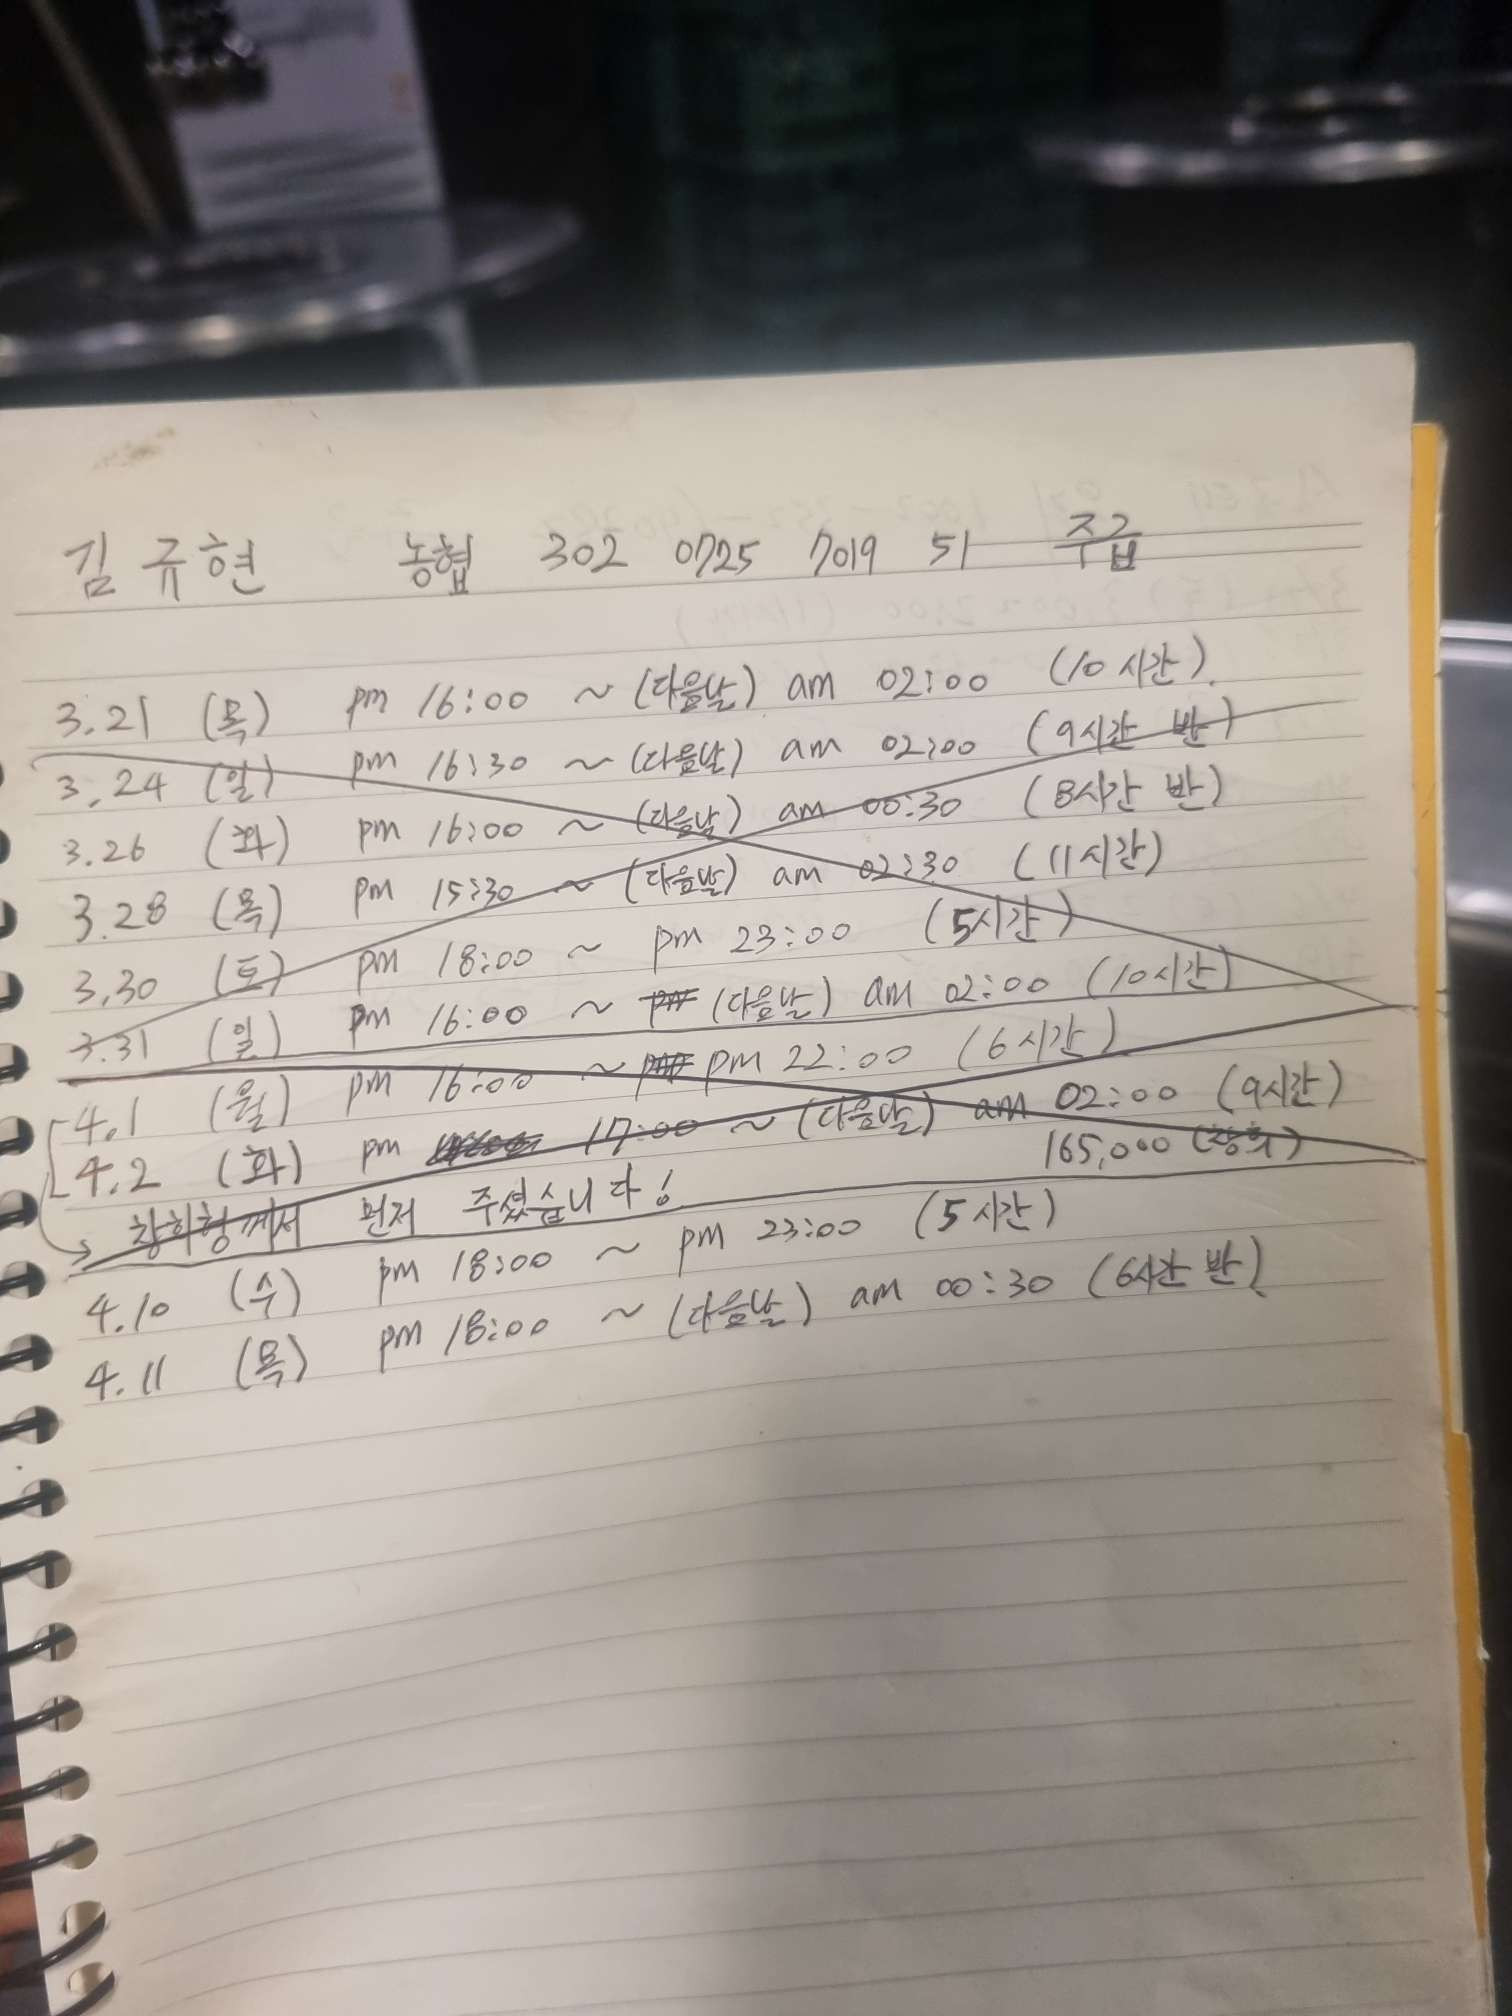 김규현 농협 302 0725 7019 51 주급
3.21 (목) pm 16:00 ~ (다음날) am 02:00 (10시간).
3.24 (일) pm 16:30 ~ (다음날) am 02:00 (9시간 반)
3.26 (화) pm 16:00 ~ (다음날) am 00:30 (8시간 반)
3.28 (목) pm 15:30 ~ (다음날) am 02:30 (11시간)
3.30 (토) pm 18:00 ~ pm 23:00 (5시간)
3.31 (일) pm 16:00 ~ (다음날) am 02:00 (10시간)
4.1 (월) pm 16:00 ~ pm 22:00 (6시간)
4.2 (화) pm 17:00 ~ (다음날) am 02:00 (9시간)
165,000 (창희)
창희형께서 먼저 주셨습니다!
4.10 (수) pm 18:00 ~ pm 23:00 (5시간)
4.11 (목) pm 18:00 ~ (다음날) am 00:30 (6시간 반)